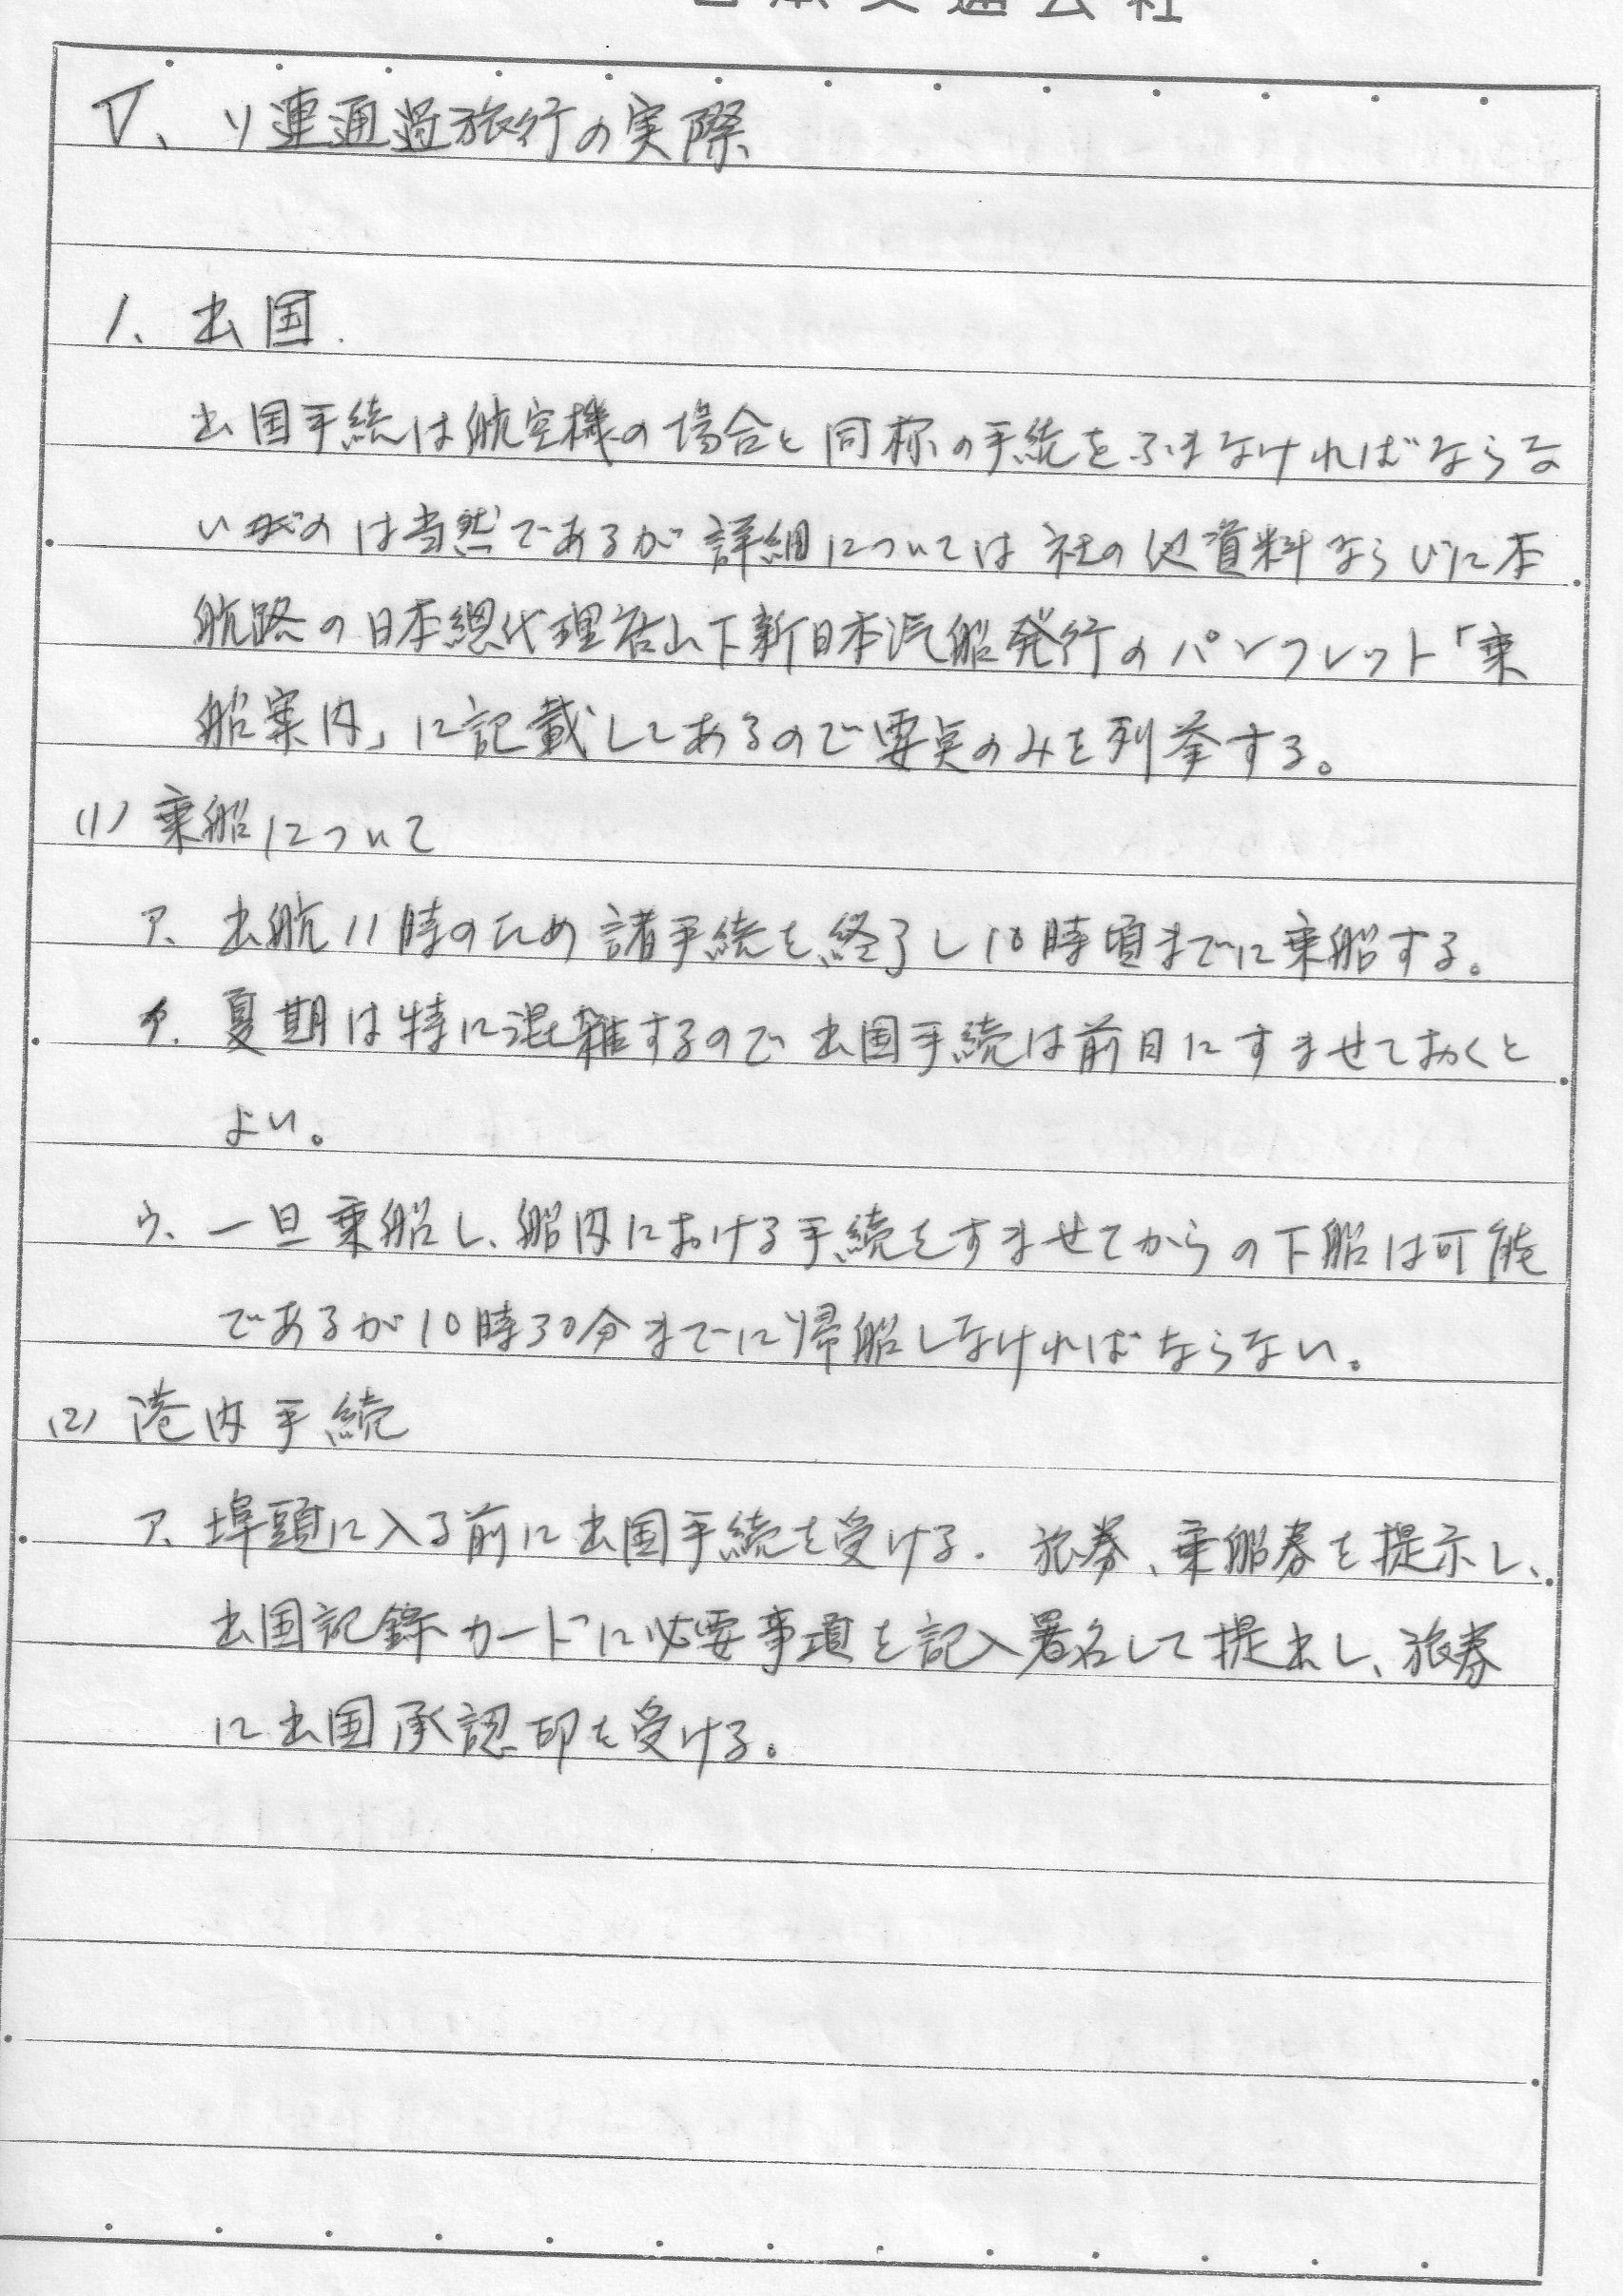 日本交通公社
Ⅴ、ソ連通過旅行の実際
1、出国.
出国手続は航空機の場合と同称の手続をふまなければならな
いのは当然であるが詳細については社の他資料ならびに本
航路の日本總代理店山下新日本汽船発行のパンフレット「乗
船案内」に記載してあるので要点のみを列挙する。
(1) 乗船について
ア、出航11時のため諸手続を終了し10時頃までに乗船する。
イ、夏期は特に混雑するので出国手続は前日にすませておくと
よい。
ウ、一旦乗船し、船内における手続をすませてからの下船は可能
であるが10時30分までに帰船しなければならない。
(2) 港内手続
ア、埠頭に入る前に出国手続を受ける. 旅券、乗船券を提示し、
出国記録カードに必要事項を記入署名して提出し、旅券
に出国承認印を受ける。